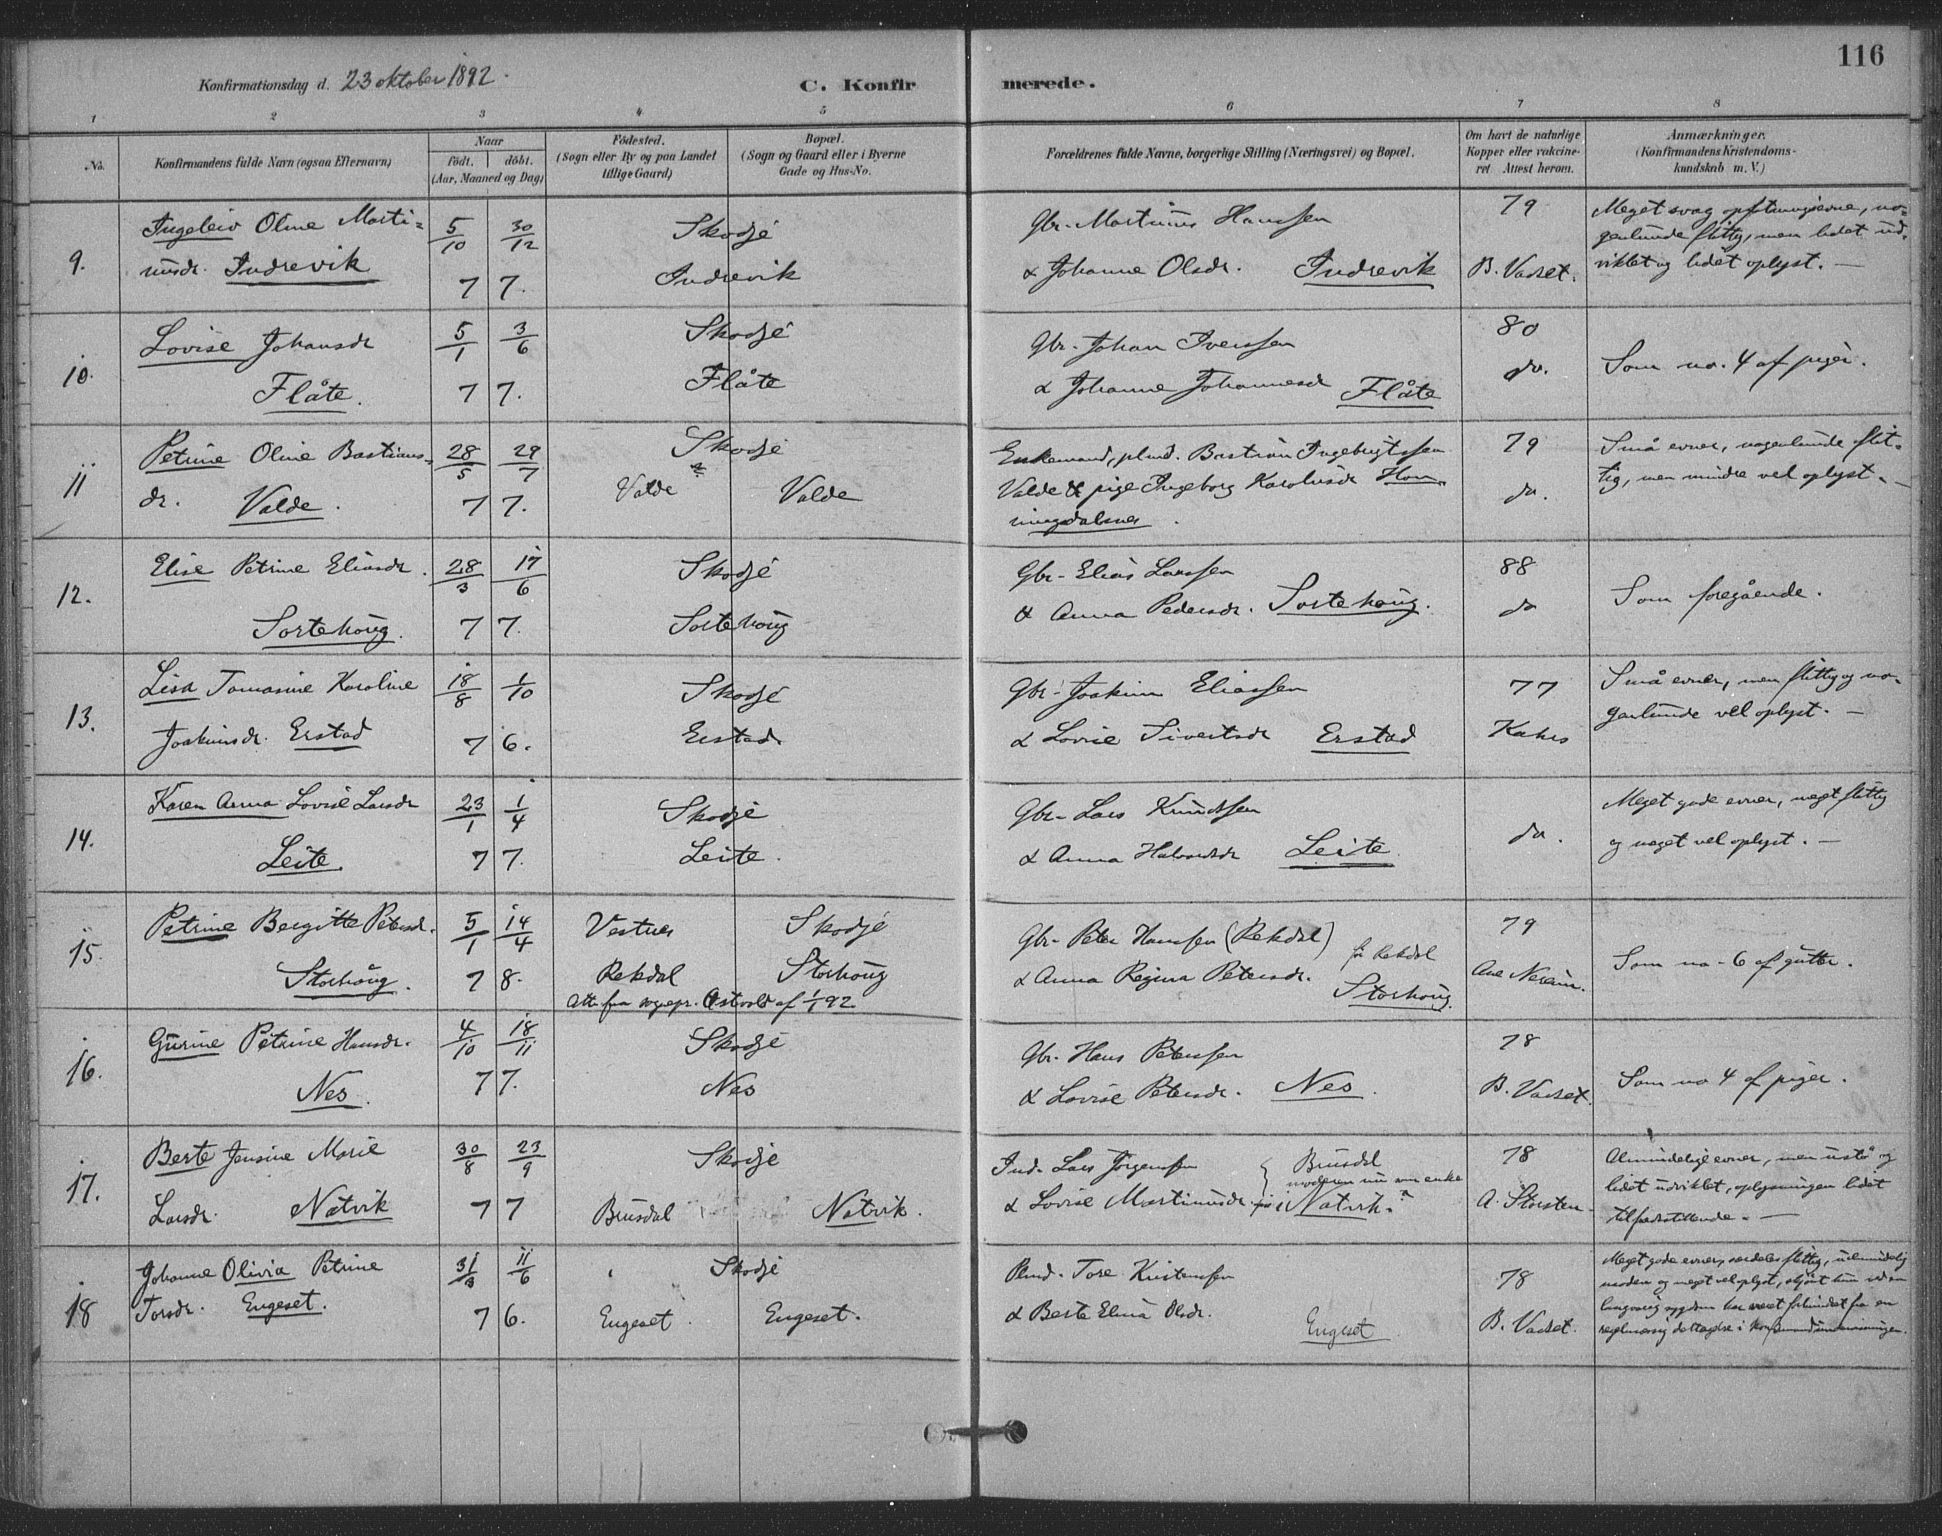 116
Konfirmationsdag d. 23 oktober 1892.
C. Konfirmerede.
1 2 3 4 5 6 7 8
No.
Konfirmandens fulde Navn (ogsaa Efternavn)
Naar
født. | döbt.
(Aar, Maaned og Dag)
Födested.
(Sogn eller By og paa Landet
tillige Gaard)
Bopæl.
(Sogn og Gaard eller i Byerne
Gade og Hus-No.
Forældrenes fulde Navne, borgerlige Stilling (Næringsvei) og Bopæl.
Om havt de naturlige
Kopper eller vakcine-
ret Attest herom.
Anmærkninger.
(Konfirmandens Kristendoms-
kundskab m. V.)
9.
Ingeleiv Oline Marti-
nusdr. Indrevik
5/10 30/12
7 7.
Skodje
Indrevik
Gbr. Martinus Hanssen
& Johanne Olsdr. Indrevik
79
B. Vadset.
Meget svag opfatningsevne, no-
genlunde flittig, men lidet ud-
viklet og lidet oplyst. —
10.
Lovise Johansdr
Flåte.
5/1 3/6
7 7.
Skodje
Flåte
Gbr. Johan Iverssen
& Johanne Johannesdr Flåte
80
do.
Som no. 4 af piger.
11
Petrine Oline Bastians-
dr. Valde.
28/5 29/7
7 7.
Skodje
Valde Valde
Enkemand, plmd. Bastian Ingebrigtssen
Valde & pige Ingeborg Karolusdr Hon-
ningdalsnes.
79
do.
Små evner, nogenlunde flit-
tig, men mindre vel oplyst. —
12.
Elise Petrine Eliasdr.
Sortehoug.
28/3 17/6
7 7.
Skodje
Sortehoug
Gbr. Elias Larssen
& Anna Pedersdr. Sortehoug.
88
do
Som foregående.
13.
Lisa Tomasine Karoline
Joakimsdr. Erstad
18/8 1/10
7 6.
Skodje
Erstad
Gbr. Joakim Eliassen
& Lovise Sivertsdr Erstad
77
Små evner, men flittig og no-
genlunde vel oplyst. —
14.
Karen Anna Lovise Larsdr
Leite.
23/1 1/4
7 7.
Skodje
Leite.
Gbr. Lars Knudssen
& Anna Halvorsdr Leite
do.
Meget gode evner, meget flittig
og meget vel oplyst. —
15.
Petrine Bergitte Petersdr.
Storhoug.
5/1 14/4
7 8.
Vestnes Skodje
Rekdal Storhoug
Att. fra sognepr. Østvold af 1/1 92
Gbr. Peter Hanssen (Rekdal)
& Anna Regina Petersdr. på Rekdal
Storhoug.
79
Ane Nerem.
Som no. 6 af gutter.
16.
Gurine Petrine Hansdr.
Nes.
4/10 18/11
7 7.
Skodje
Nes
Gbr. Hans Peterssen
& Lovise Petersdr. Nes.
78
B. Vadset.
Som no 4 af piger.
17.
Berte Jensine Marie
Larsdr. Nátvik
30/8 23/9
7 7
Skodje
Brusdal Nátvik.
Ind. Lars Jørgenssen
& Lovise Martinusdr
Brusdal
moderen nu som enke
i Nátvik.
78
A. Storsten.
Almindelige evner, men ustø og
lidet udviklet, oplysningen lidet
tilfredsstillende. —
18
Johanne Olivia Petrine
Torsdr. Engeset.
31/3 11/6
7 6.
Skodje
Engeset. Engeset.
Plmd. Tore Kristenssen
& Berte Elina Olsdr.
Engeset
78
B. Vadset.
Meget gode evner, særdeles flittig, ualmindelig
moden og meget vel oplyst, skjønt hun ved en
langvarig sygdom har været forhindret fra en
regelmæssig deltagelse i konfirmandundervisningen.